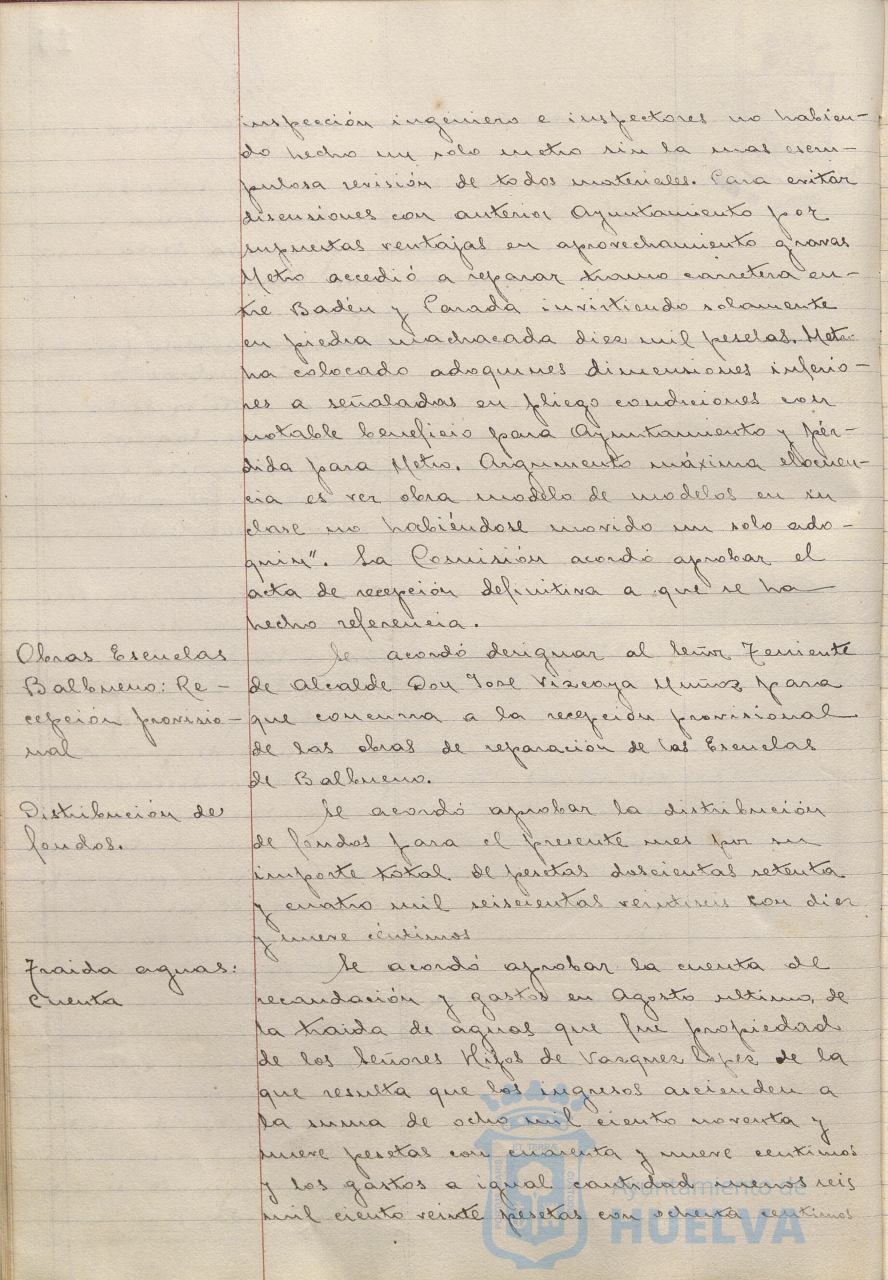 inspección ingeniero e inspectores no habien-
do hecho un solo metro sin la mas escru-
pulosa revisión de todos materiales. Para evitar
discusiones con anterior Ayuntamiento por
supuestas ventajas en aprovechamiento gravas
Metro accedió a reparar tramo carretera en-
tre Badén y Parada invirtiendo solamente
en piedra machacada diez mil pesetas. Metro
ha colocado adoquines dimensiones inferio-
res a señalados en pliego condiciones con
notable beneficio para Ayuntamiento y pér-
dida para Metro. Argumento máxima elocuen-
cia es ver obra modelo de modelos en su
clase no habiéndose movido un solo ado-
quin". La Comisión acordó aprobar el
acta de recepción definitiva a que se ha
hecho referencia.
Obras Escuelas
Balbueno: Re-
cepción provisio-
nal
Se acordó designar al Señor Teniente
de Alcalde Don José Vizcaya Muñoz para
que concurra a la recepción provisional
de las obras de reparación de las Escuelas
de Balbueno.
Distribución de
fondos.
Se acordó aprobar la distribución
de fondos para el presente mes por su
importe total de pesetas doscientas setenta
y cuatro mil seiscientas veintiseis con diez
y nueve céntimos
Traida aguas:
Cuenta
Se acordó aprobar la cuenta de
recaudación y gastos en Agosto ultimo, de
la traida de aguas que fue propiedad
de los Señores Hijos de Vazquez Lopez de la
que resulta que los ingresos ascienden a
la suma de ocho mil ciento noventa y
nueve pesetas con cuarenta y nueve centimos
y los gastos a igual cantidad menos seis
mil ciento veinte pesetas con ochenta centimos
Ayuntamiento de
HUELVA